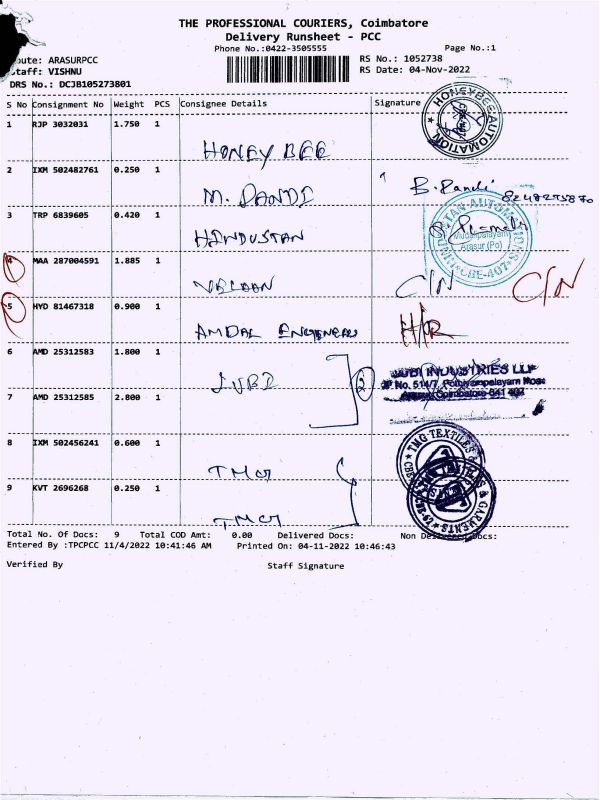 THE PROFESSIONAL COURIERS, Coimbatore
Delivery Runsheet - PCC
Phone No.:0422-3505555 Page No.:1
ARASURPCC RS No.: 1052738
VISHNU RS Date: 04-Nov-2022
DRS No.: DCJB105273801
S No Consignment No Weight PCS Consignee Details Signature
1 RJP 3032031 1.750 1
HONEY BEE
HONEYBEE AUTOMATION
2 IXM 502482761 0.250 1
M. PANDI B. Pandi
3 TRP 6839605 0.420 1
HINDUSTAN
Arasur (Po)
CBE-407
4 MAA 287004591 1.885 1
C/N C/N
5 HYD 81467318 0.900 1
AMDAL
6 AMD 25312583 1.800 1
JUBI 2
JUBI INDUSTRIES LLP
SF No. 514/7, Pothiyampalayam
Arasur, Coimbatore-641 407
7 AMD 25312585 2.800 1
8 IXM 502456241 0.600 1
TMG
TMG TEXTILES & GARMENTS
9 KVT 2696268 0.250 1
TMG
Total No. Of Docs: 9 Total COD Amt: 0.00 Delivered Docs: Non Delivered Docs:
Entered By :TPCPCC 11/4/2022 10:41:46 AM Printed On: 04-11-2022 10:46:43
Verified By Staff Signature